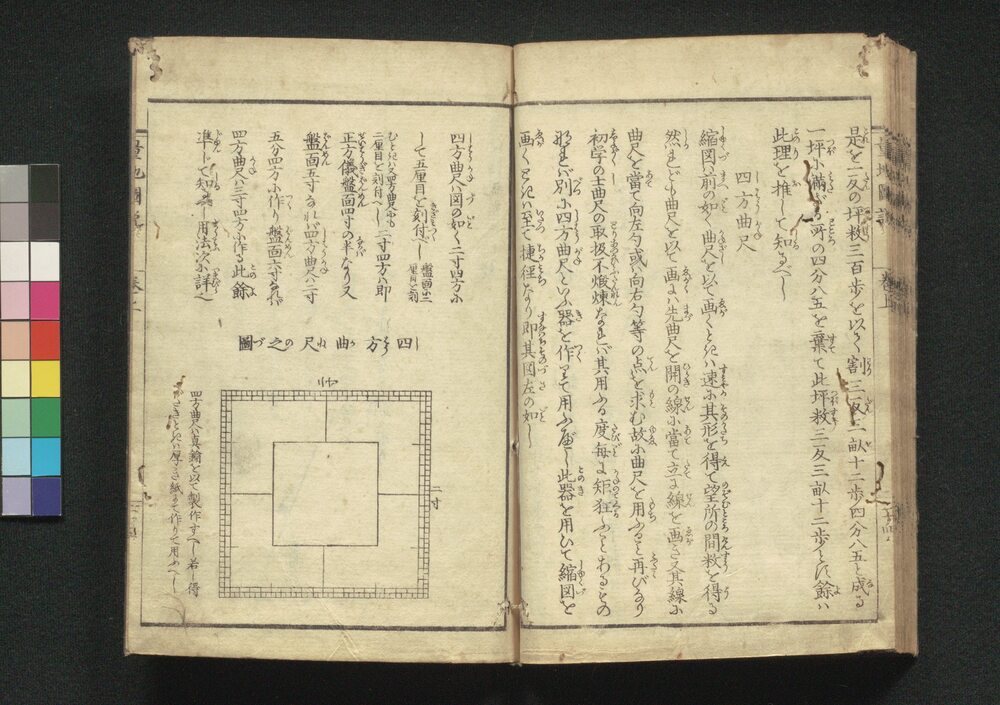 是を一反の坪数三百歩を以て割三反三畝十二歩四分八五と成る
一坪に満ざる所の四分八五を棄て此坪数三反三畝十二歩とす餘ハ
此理を推して知るべし
四方曲尺
縮図前の如く曲尺を以て画くときハ速に其形を得て望所の間数を得る
然れども曲尺を以て画にハ先曲尺を開の線に當て立る線を画き又其線に
曲尺を當て向左勾或ハ向右勾等の点を求む故に曲尺を用ふること再びなり
初学の士曲尺の取扱不煅煉なれバ其用ふる度毎に矩狂ふことあるもの
なれバ別に四方曲尺といふ器を作りて用ふべし此器を用いて縮図を
画くときハ至て捷徑なり即其図左の如し
四方曲尺ハ図の如く二寸四方に
して五厘目を刻付べし
二厘目を刻付べし二寸四方ハ即
正方儀盤面四寸の半なり又
盤面五寸なれバ四方曲尺ハ二寸
五分四方に作り盤面六寸なれバ
四方曲尺ハ三寸四方に作る此餘
準じて知べし用法次に詳之
四方曲尺之圖
二寸
四方曲尺ハ真鍮を以て製作すべし若し得
がたきときハ厚き紙にて作りて用ふべし